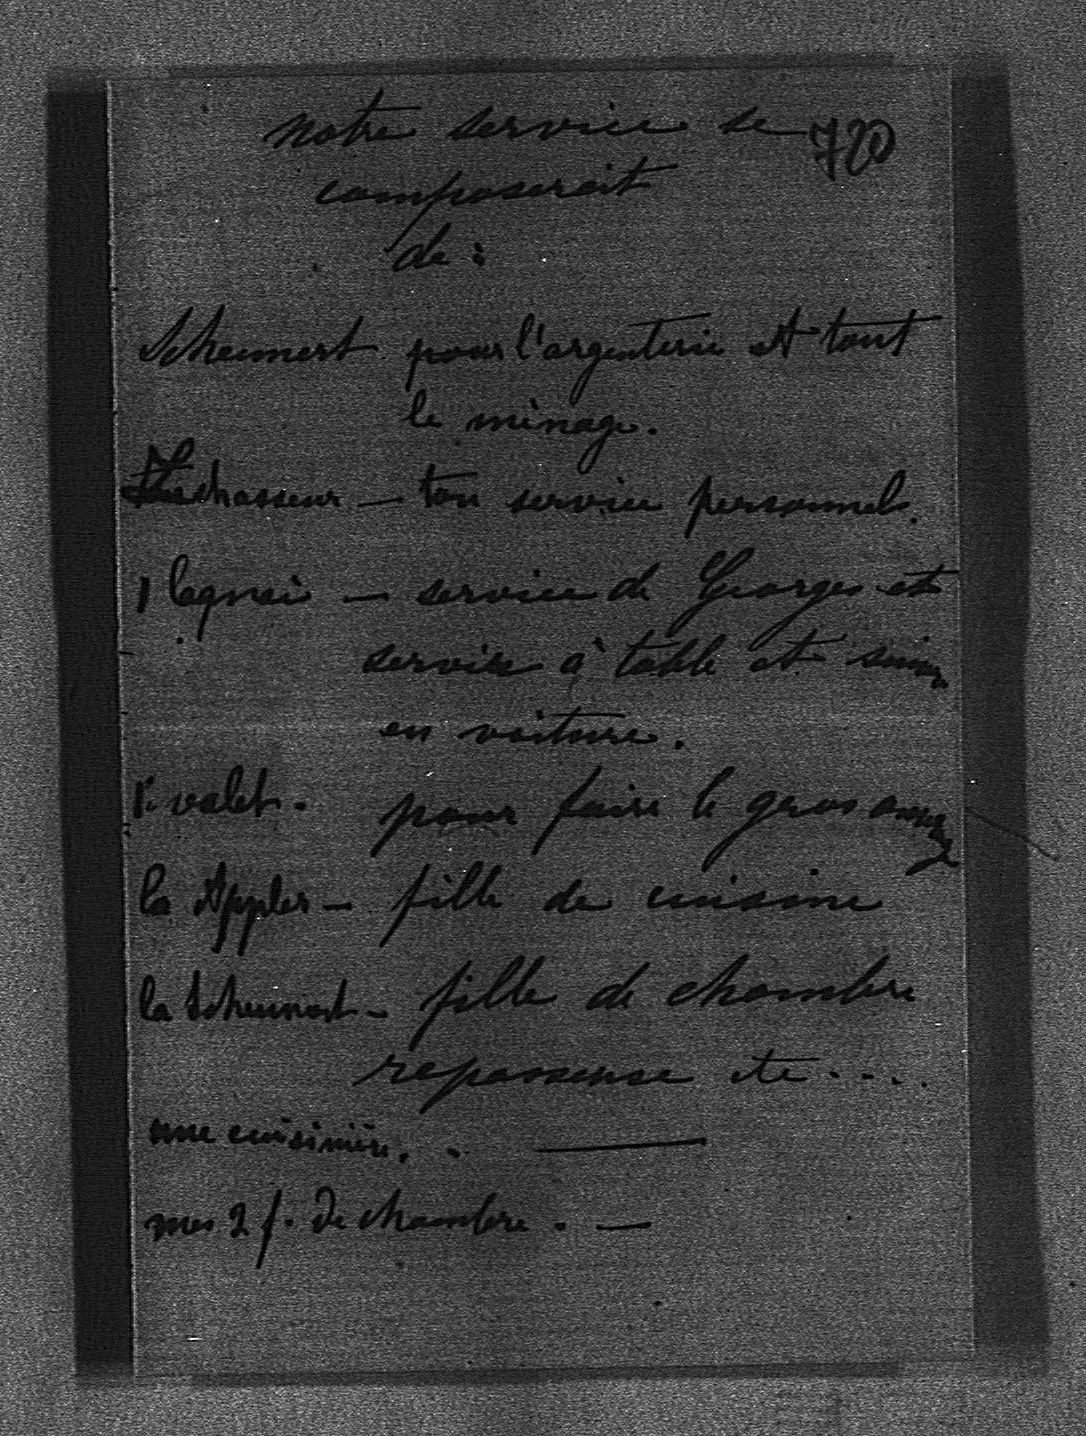 notre service se 720
composerait
de :
Scheunert pour l'argenterie et tout
le ménage.
chasseur — ton service personnel.
1 laquai — service de Georges et
service à table et suivre
en voiture.
1. valet. pour faire le gros ouvrage
la Appler — fille de cuisine
la Scheunert — fille de chambre
repasseuse etc....
une cuisinière. . —
mes 2 f. de chambre. —